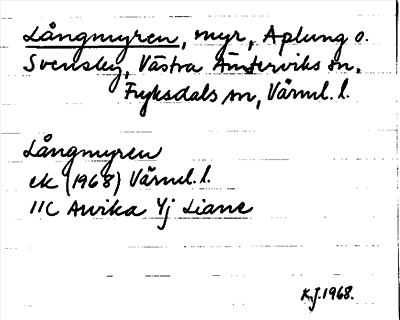 Långmyren, myr, Aplung o.
Svensby, Västra Ämterviks sn,
Fryksdals sn, Värml. l.
Långmyren
ek (1968) Värml. l.
11C Arvika 4j Liane
K.J. 1968.